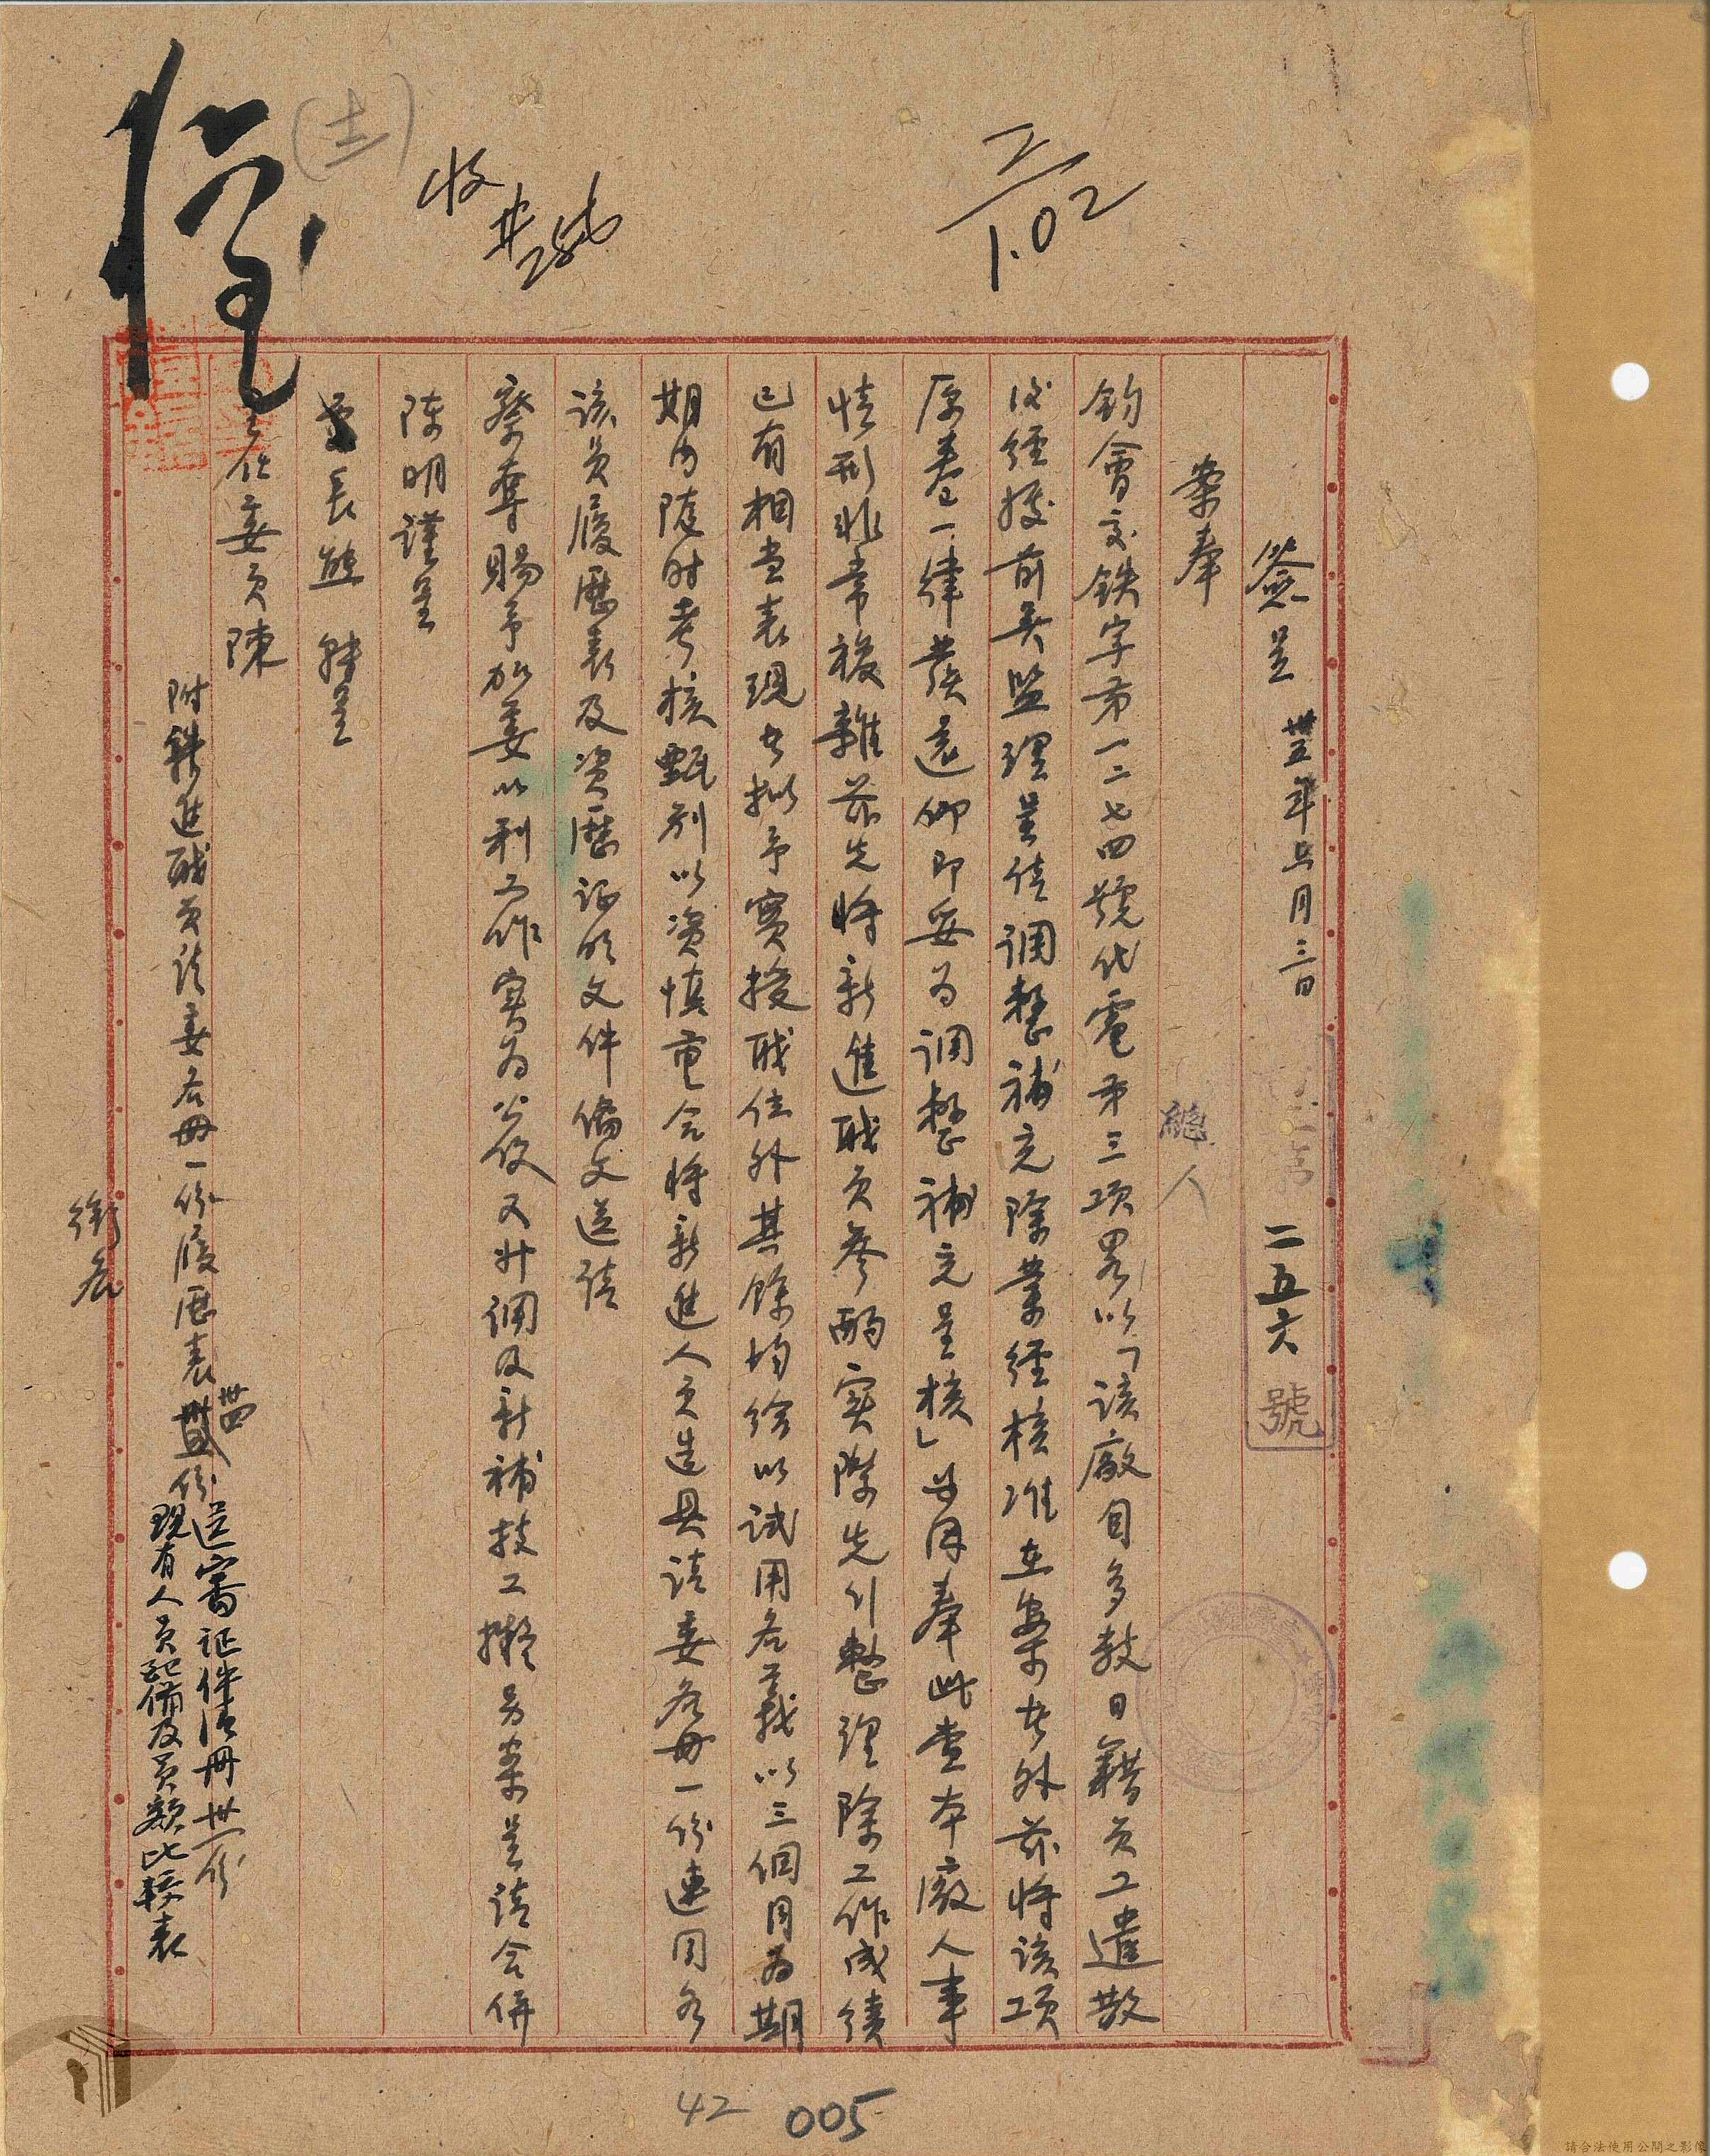 簽呈 卅五年五月三日
二五六號
案奉
總人
鈞會交鉄字第一二七四號代電第三項畧以「該廠自多数日籍員工遣散
後經據前吳監理呈請調整補充除業經核准在案者外茲將該項
原卷一律發還仰即妥為調整補充呈核」等因奉此查本廠人事
情形非常複雜茲先將新進職員參酌實際先行整理除工作成績
已有相當表現者擬予實授職位外其餘均給以試用名義以三個月為期
期內随时考核甄别以資慎重合將新進人員造具請委名冊一份連同各
該員履歷表及資歷証明文件備文送請
察奪賜予加委以利工作實為公便又升調及新補技工擬另案呈請合併
陳明謹呈
處長熊 轉呈
主任委員陳
附新進職員請委名冊一份履歷表卅四份
送審証件清冊卅一份
現有人員配備及員額比較表
銜名
收
1.02
42
005
請合法使用公開之影像